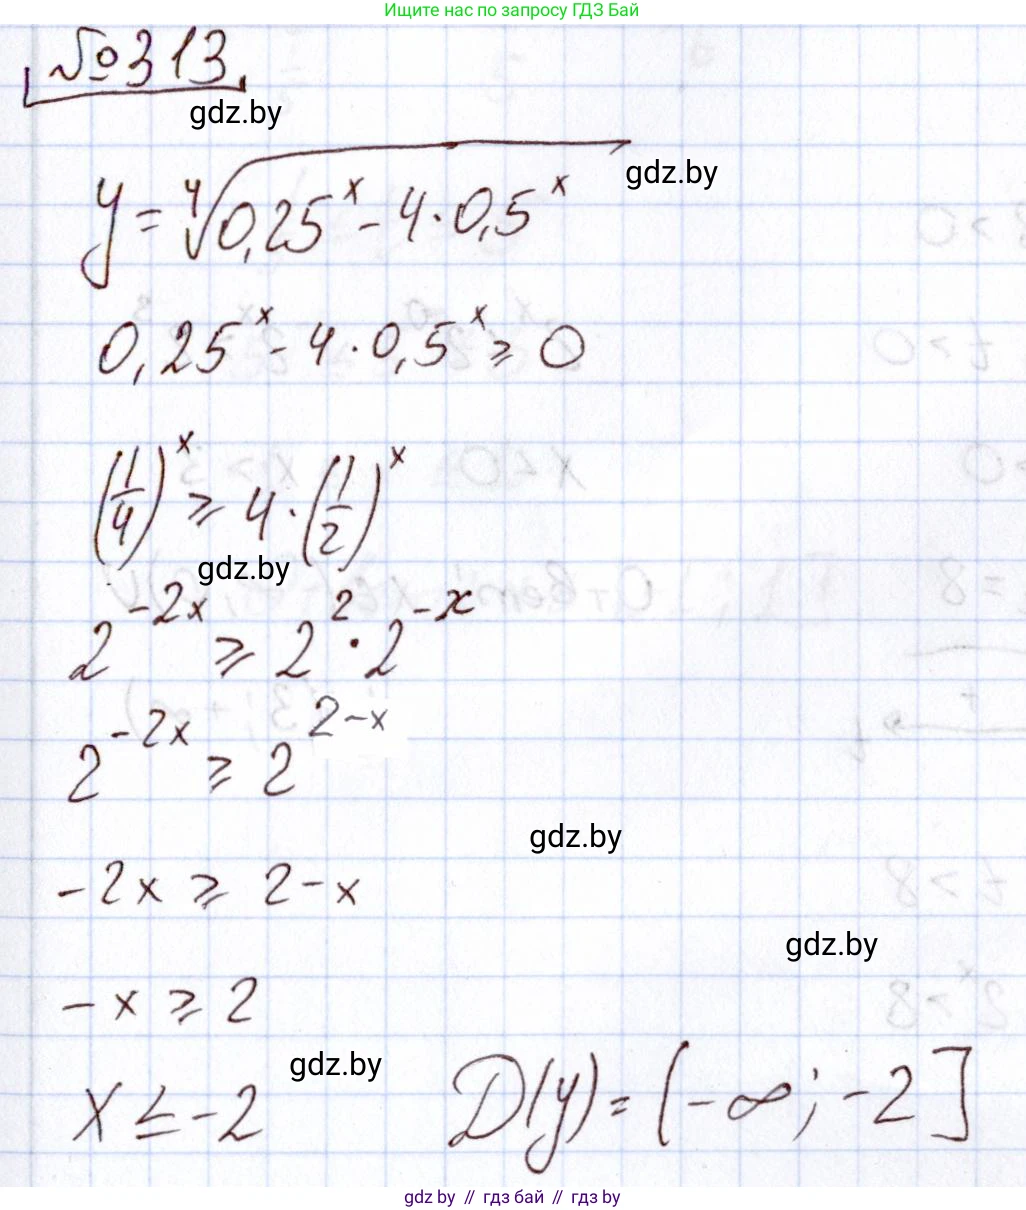 Ищите нас по запросу ГДЗ Бай
№313
gdz.by
gdz.by
y = ∜(0,25^x - 4·0,5^x)
0,25^x - 4·0,5^x ≥ 0
(1/4)^x ≥ 4·(1/2)^x
gdz.by
2^(-2x) ≥ 2^2·2^(-x)
2^(-2x) ≥ 2^(2-x)
gdz.by
-2x ≥ 2-x
gdz.by
-x ≥ 2
gdz.by
x ≤ -2 D(y) = (-∞; -2]
gdz by // гдз бай // гдз by